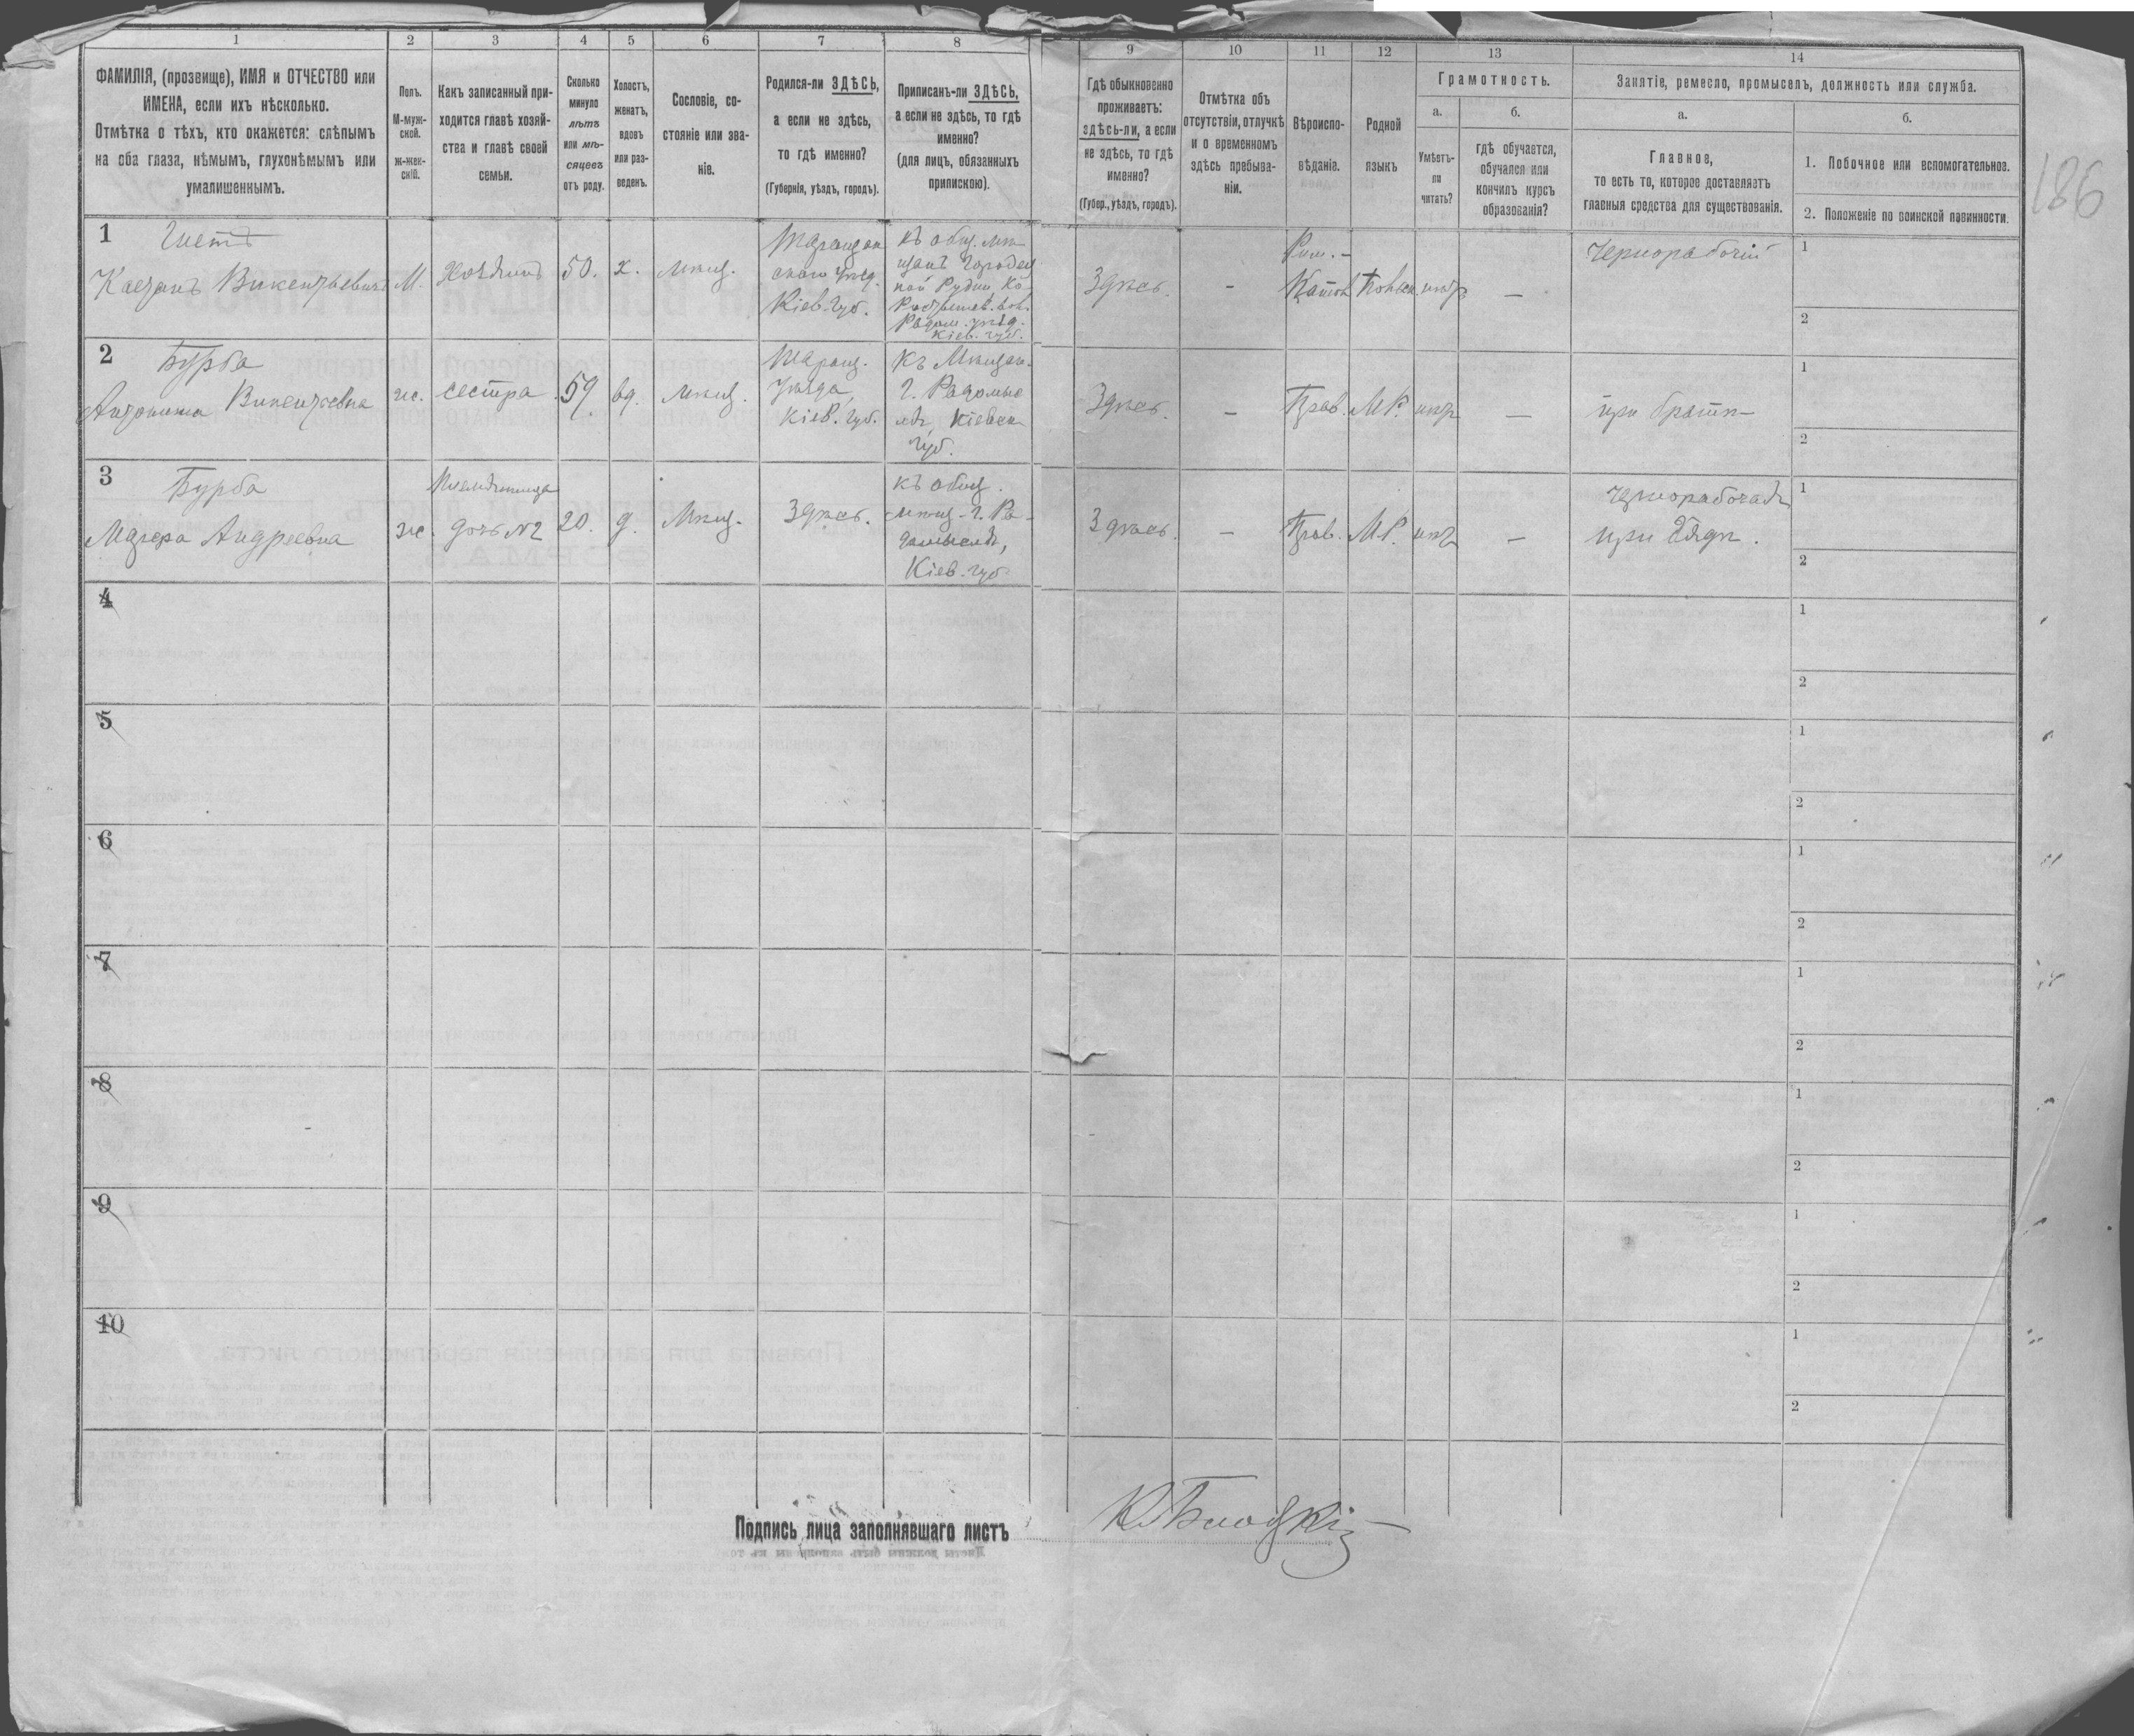 1
2
3
4
5
6
7
8
ФАМИЛІЯ, (прозвище), ИМЯ и ОТЧЕСТВО или
ИМЕНА, если ихъ нѣсколько.
Отмѣтка о тѣхъ, кто окажется: слѣпымъ
на оба глаза, нѣмымъ, глухонѣмымъ или
умалишеннымъ.
Полъ.
М-муж-
ской.
ж-жен-
скій.
Какъ записанный при-
ходится главѣ хозяй-
ства и главѣ своей
семьи.
Сколько
минуло
лѣтъ
или мѣ-
сяцевъ
отъ роду.
Холостъ,
женатъ,
вдовъ
или раз-
веденъ.
Сословіе, со-
стояніе или зва-
ніе.
Родился-ли ЗДѢСЬ,
а если не здѣсь,
то гдѣ именно?
(Губернія, уѣздъ, городъ).
Приписанъ-ли ЗДѢСЬ,
а если не здѣсь, то гдѣ
именно?
(для лицъ, обязанныхъ
припискою).
9
10
11
12
13
14
Гдѣ обыкновенно
проживаетъ:
здѣсь-ли, а если
не здѣсь, то гдѣ
именно?
(Губер., уѣздъ, городъ).
Отмѣтка объ
отсутствіи, отлучкѣ
и о временномъ
здѣсь пребыва-
ніи.
Вѣроиспо-
вѣданіе.
Родной
языкъ
Грамотность.
а.
Умѣетъ-
ли
читать?
б.
гдѣ обучается,
обучался или
кончилъ курсъ
образованія?
Занятіе, ремесло, промыселъ, должность или служба.
а.
Главное,
то есть то, которое доставляетъ
главныя средства для существованія.
б.
1. Побочное или вспомогательное.
2. Положеніе по воинской повинности.
186
1
Каетанъ Викентьевичъ
М.
Хозяинъ
50.
х.
мѣщ.
Таращан
скаго уѣзд.
Кіев. губ.
къ общ. мѣ
щанъ Городец
кой Рудни Ко
Ростышев. вол.
Радом. уѣзд.
Кіев. губ.
Здѣсь.
-
Рим.-
Катол
Польск.
нѣт
—
Чернорабочій
1
2
2
Бурба
Антонина Викентьевна
ж.
сестра
59
вд.
мѣщ.
Таращ.
уѣзда,
Кіев. губ.
Къ Мѣщан.
г. Радомыс
лѣ, Кіевск
губ.
Здѣсь.
-
Прав.
М.Р.
нѣт
—
при братѣ
1
2
3
Бурба
Андреевна
ж.
Племянница
дочь №2
20.
д.
Мѣщ.
Здѣсь.
къ общ.
мѣщ. г. Ра-
домыслѣ,
Кіев. губ
Здѣсь.
-
Прав.
М.Р.
нѣт
-
чернорабочая
при дядѣ.
1
2
4
1
2
5
1
2
6
1
2
7
1
2
8
1
2
9
1
2
10
1
2
Подпись лица заполнявшаго листъ